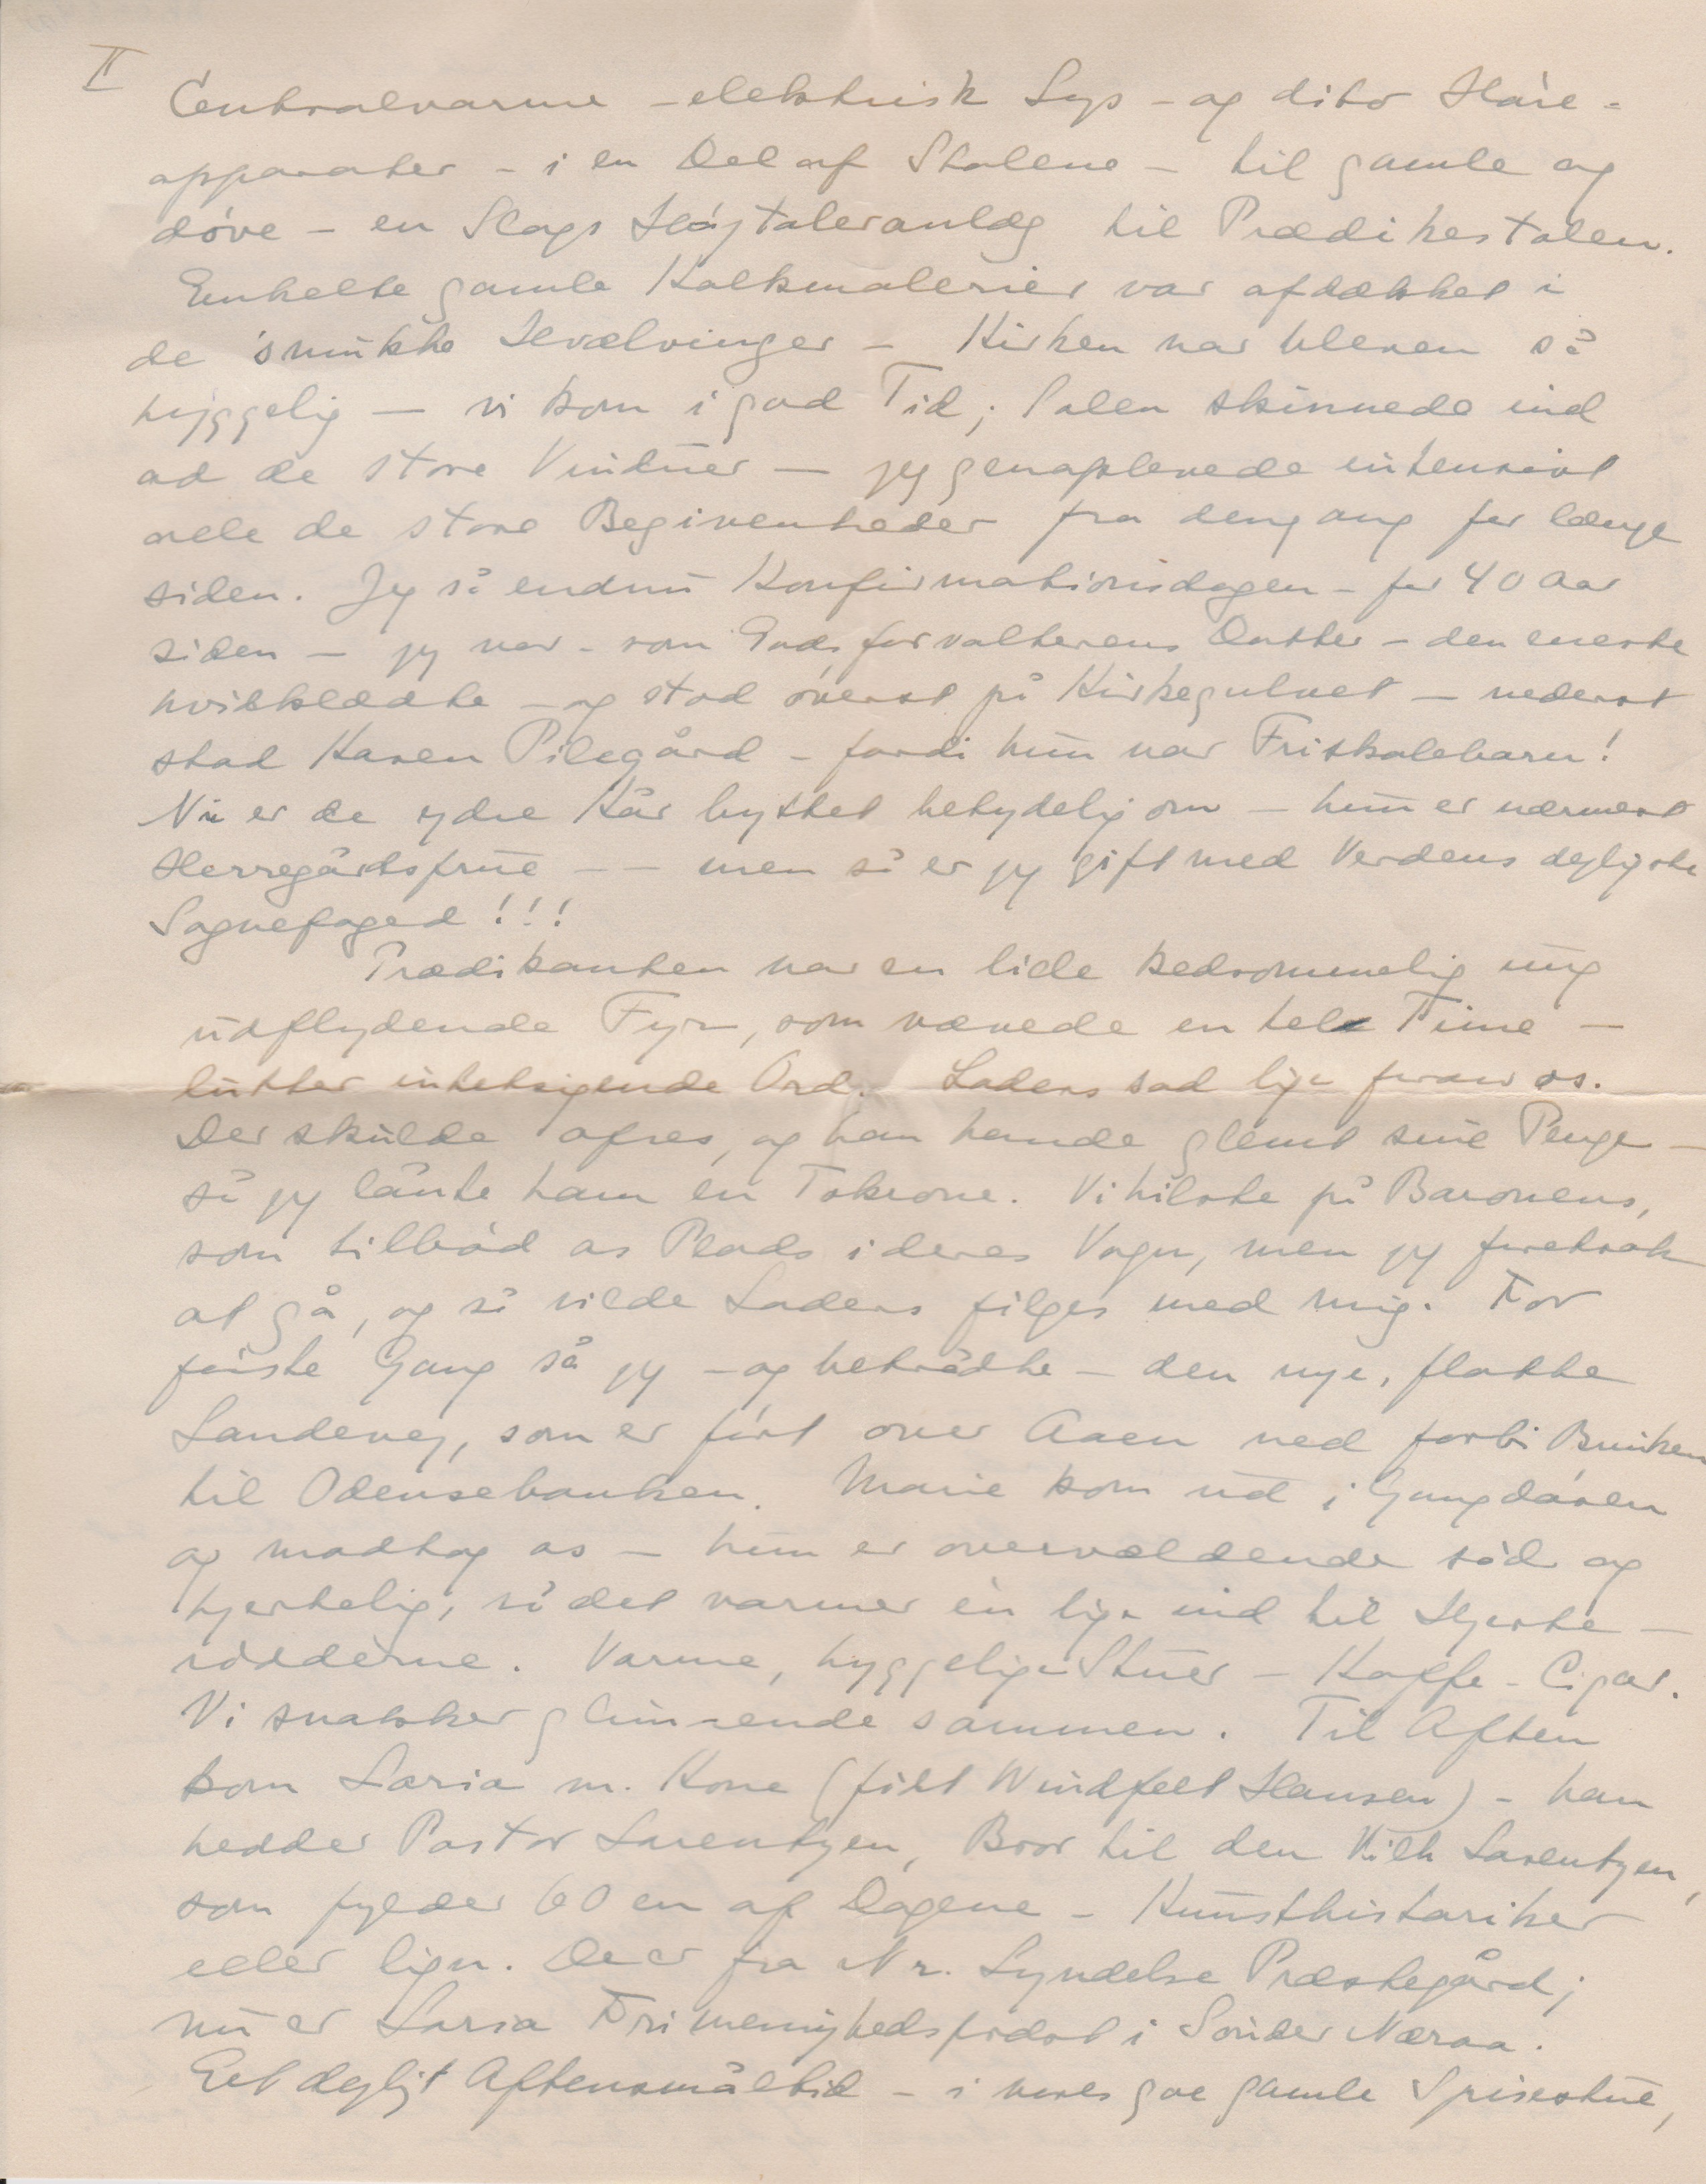 II
Centralvarme - elektrisk Lys - og dito Høre-
apparater - i en Del af Stolene - til gamle og
døve - en Slags Højtaleranlæg til Prædikestolen.
Enkelte gamle Kalkmalerier var afdækket i
de smukke Hvælvinger - Kirken var bleven så
hyggelig - vi kom i god Tid; Solen skinnede ind
ad de store Vinduer - jeg genoplevede intensivt
alle de store Begivenheder fra dengang for længe
siden. Jeg så endnu Konfirmationsdagen - for 40 Aar
siden - jeg var - som Godsforvalterens Datter - den eneste
hvidklædte - og stod øverst på Kirkegulvet - nederst
stod Karen Pilegård - fordi hun var Friskolebarn!
Nu er de ydre Kår byttet betydelig om - hun er nærmest
Herregårdsfrue -- men så er jeg gift med Verdens dejligste
Sognefoged!!!
Prædikanten var en lidt kedsommelig ung
udflydende Fyr, som vævede en hel Time -
lutter intetsigende Ord. Laders sad lige foran os.
Der skulde ofres, og han havde glemt sine Penge -
så jeg lånte ham en Tokrone. Vi hilste på Baronens,
som tilbød os Plads i deres Vogn, men jeg foretrak
at gå, og så vilde Laders følges med mig. For
første Gang så jeg - og betrådte - den nye, flotte
Landevej, som er ført over Aaen ned forbi Banken
til Odensebanken. Marie kom ud i Gangdøren
og modtog os - hun er overvældende sød og
hjertelig, så det varmer én lige ind til Hjerte-
rødderne. Varme, hyggelige Stuer - Kaffe - Cigar.
Vi snakker glimrende sammen. Til Aften
kom Laria m. Kone (født Windfelt Hansen) - han
hedder Pastor Lorentzen, Bror til den Vilh Lorentzen,
som fylder 60 en af Dagene - Kunsthistoriker
eller lign. De er fra Nr. Lyndelse Præstegård;
nu er Laria Frimenighedspræst i Sønder Næraa.
Eet dejligt Aftensmåltid - i vores goe gamle Spisestue,